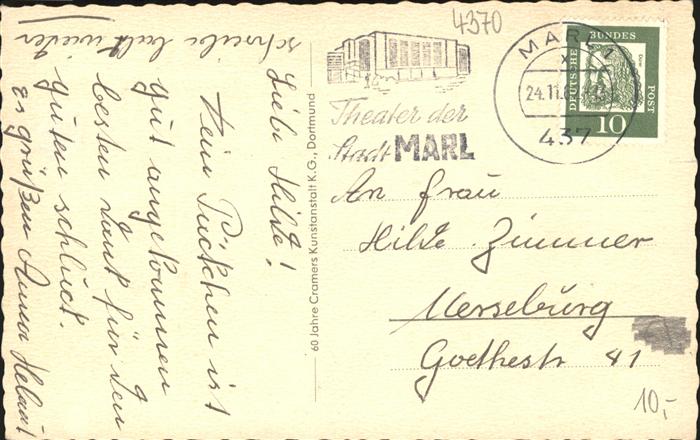 4370
MARL 1
24.11.6
437
DEUTSCHE BUNDES POST
10
Theater der
Stadt MARL
Liebe Hilde!
Dein Päckchen ist
gut angekommen
besten Dank für den
guten schluck.
Es grüßen Anna
schreibe bald wieder
60 Jahre Cramers Kunstanstalt K.G., Dortmund
An Frau
Hilde Zimmer
Merseburg
Goethestr 41
10,-